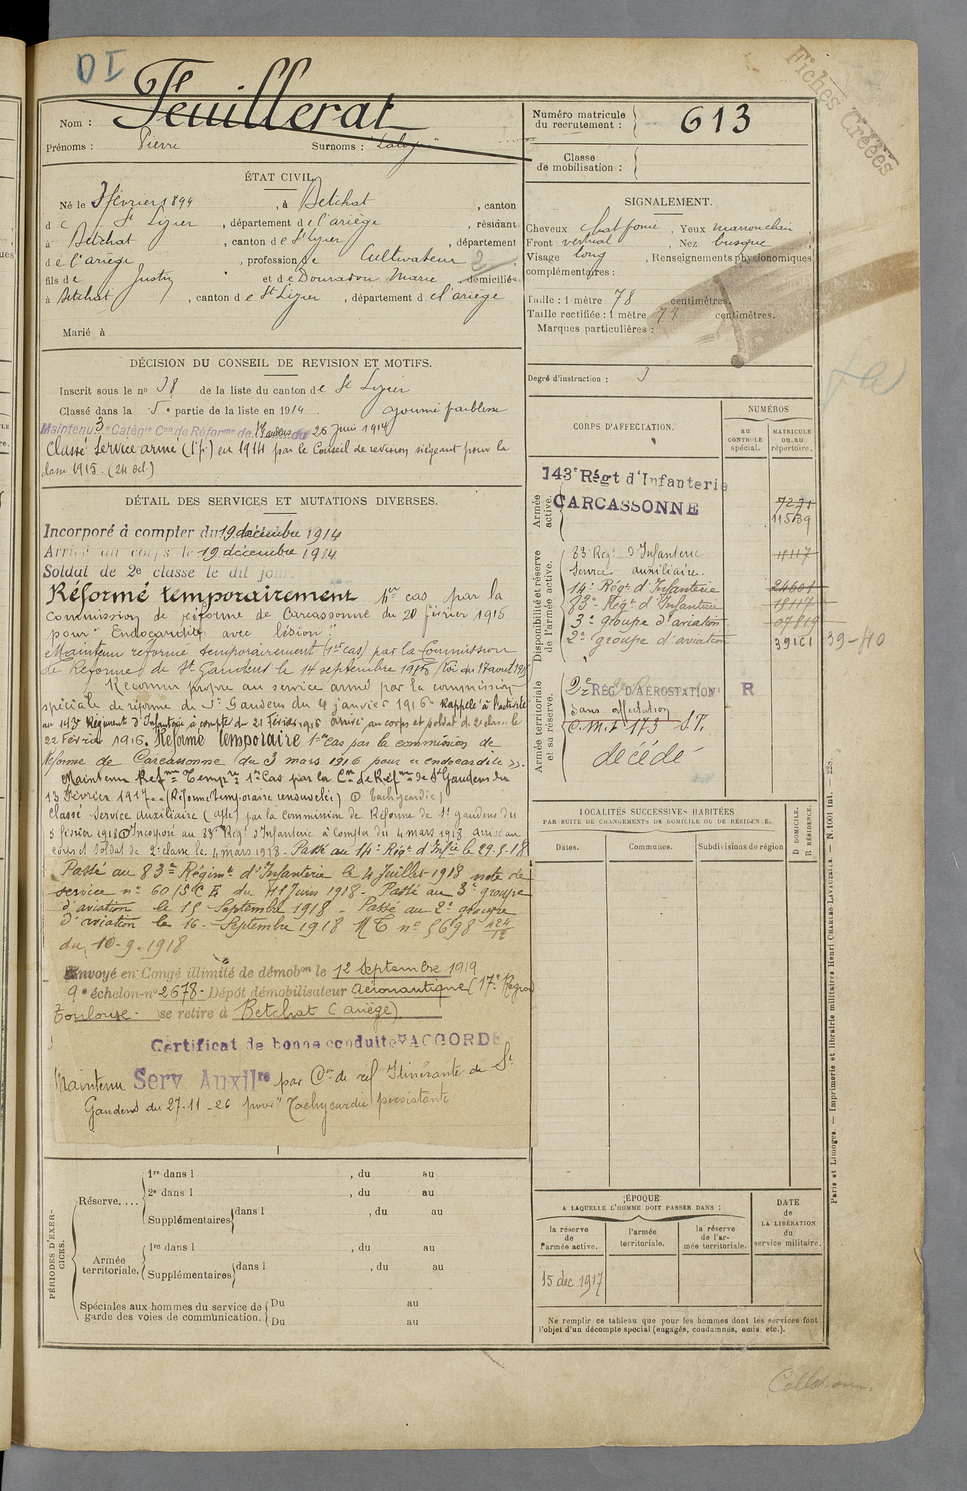 DI
Fiches Créées
Nom : Feuillerat
Prénoms : Pierre Surnoms :
Numéro matricule du recrutement : 613
Classe de mobilisation :
ÉTAT CIVIL.
Né le 3 février 1894, à Betchat, canton
d e St Lizier, département d e l'ariège, résidant
à Betchat, canton d e St Lizier, département
d e l'ariège, profession de Cultivateur 2
fils de Justin et d e Douradou Marie, domiciliés
à Betchat, canton d e St Lizier, département d e l'ariège
Marié à
SIGNALEMENT.
Cheveux chat foncé, Yeux marron clair
Front vertical, Nez busqué
Visage long, Renseignements physionomiques
complémentaires :
Taille : 1 mètre 78 centimètres.
Taille rectifiée : 1 mètre 74 centimètres.
Marques particulières :
Degré d'instruction : 3
DÉCISION DU CONSEIL DE REVISION ET MOTIFS.
Inscrit sous le no 38 de la liste du canton d e St Lizier
Classé dans la 5e partie de la liste en 1914. ajourné faiblesse
Maintenu 3e Catégie Con de Réforme de St Gaudens du 26 juin 1914
Classé Service armé (1 pie) en 1914 par le Conseil de revision siégeant pour la
classe 1915. (24 oct.)
DÉTAIL DES SERVICES ET MUTATIONS DIVERSES.
Incorporé à compter du 19 décembre 1914
Arrivé au corps le 19 décembre 1914
Soldat de 2e classe le dit jour.
Réformé temporairement 1er cas par la
commission de réforme de Carcassonne du 20 février 1915
pour "Endocardite avec lésion".
Maintenu réformé temporairement (1er cas) par la Commission
de Réforme de St Gaudens le 14 septembre 1915 (loi du 17 avril 1915)
Reconnu propre au service armé par la commission
spéciale de réforme de St Gaudens du 4 janvier 1916 Rappelé à l'activité
au 143e Régiment d'Infanterie à compter du 21 Février 1916 arrivé au corps et soldat de 2e classe le
22 Février 1916. Réformé temporaire 1er cas par la commission de
Réforme de Carcassonne du 3 mars 1916 pour « endocardite ».
Maintenu Refmé Tempre 1er Cas par la Con de Réfme de St Gaudens du
13 Février 1917 (Réforme temporaire renouvelée) tachycardie
Classé Service Auxiliaire par la Commission de Réforme de St Gaudens du
5 février 1918 Incorporé au 83e Régt d'Infanterie à Compter du 4 mars 1918 arrivé au
corps et Soldat de 2e classe le 4 mars 1918. Passé au 14e Régt d'Infie le 29.5.18
Passé au 83e Régimt d'Infanterie le 4 Juillet 1918 note de
service no 60/5C E du 11 Juin 1918 - Passé au 3e groupe
d'aviation le 15 Septembre 1918 - Passé au 2e groupe
d'aviation le 16 Septembre 1918 M C no 5698 424/12
du 10-9-1918
Envoyé en Congé illimité de démobon le 12 Septembre 1919
9e échelon no 2678 - Dépôt démobilisateur aéronautique (17e Région
Toulouse - se retire à Betchat (ariège)
Certificat de bonne conduite "ACCORDÉ
Maintenu Serv. Auxilre par Con de réf Itinérante de St
Gaudens du 27-11-26 pour "Tachycardie persistante
CORPS D'AFFECTATION.
NUMÉROS
au CONTRÔLE spécial.
MATRICULE ou au répertoire.
Armée active.
143e Régt d'Infanterie
CARCASSONNE
7271
11539
Disponibilité et réserve de l'armée active.
83e Régt d'Infanterie 18117
Service auxiliaire.
14e Régt d'Infanterie 24601
83e Régt d'Infanterie 18117
3e groupe d'aviation 07819
2e groupe d'aviation 39161 39-40
Armée territoriale et sa réserve.
2e RÉG. D'AÉROSTATION R
Sans affectation
C.M.I 173 S.T.
décédé
LOCALITÉS SUCCESSIVES HABITÉES
PAR SUITE DE CHANGEMENTS DE DOMICILE OU DE RÉSIDENCE.
Dates. Communes. Subdivisions de région
D DOMICILE. R RÉSIDENCE.
PÉRIODES D'EXERCICES.
Réserve.... 1re dans l , du au
2e dans l , du au
Supplémentaires dans l , du au
Armée territoriale. 1re dans l , du au
Supplémentaires dans l , du au
Spéciales aux hommes du service de garde des voies de communication. Du au
Du au
ÉPOQUE
A LAQUELLE L'HOMME DOIT PASSER DANS :
la réserve de l'armée active.
l'armée territoriale.
la réserve de l'armée territoriale.
DATE de LA LIBÉRATION du service militaire.
15 dec 1917
Ne remplir ce tableau que pour les hommes dont les services font
l'objet d'un décompte spécial (engagés, condamnés, omis, etc.).
Paris et Limoges. — Imprimerie et librairie militaires Henri CHARLES-LAVAUZELLE. — N. 1001 Int. — 228.